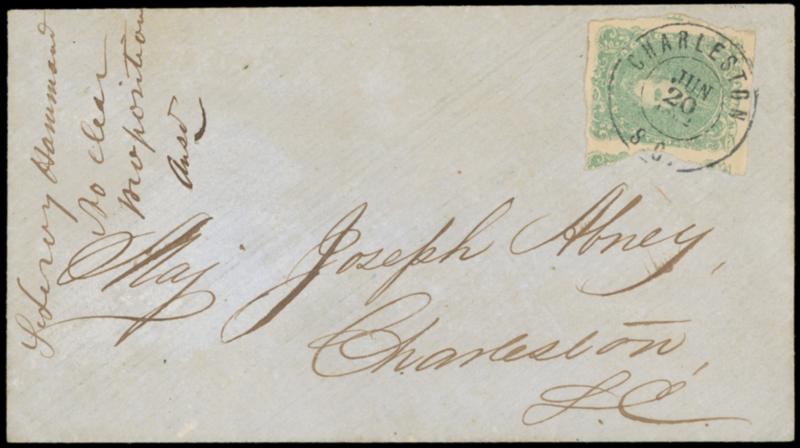 CHARLESTON
JUN
20
S.C.
Hammond
No clear
proposition
Ansd
Maj Joseph Abney,
Charleston,
S.C.